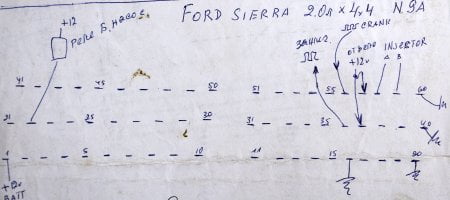 FORD SIERRA 2.0л x 4x4 N9A
+12
РЕЛЕ Б. НАСОС.
ЗАЖИГ.
CRANK
ОТ РЕЛЕ INJECTOR
+12v A B
41 45 50 51 55 60
21 25 30 31 35 40
1 5 10 11 15 20
+12v
BAIT